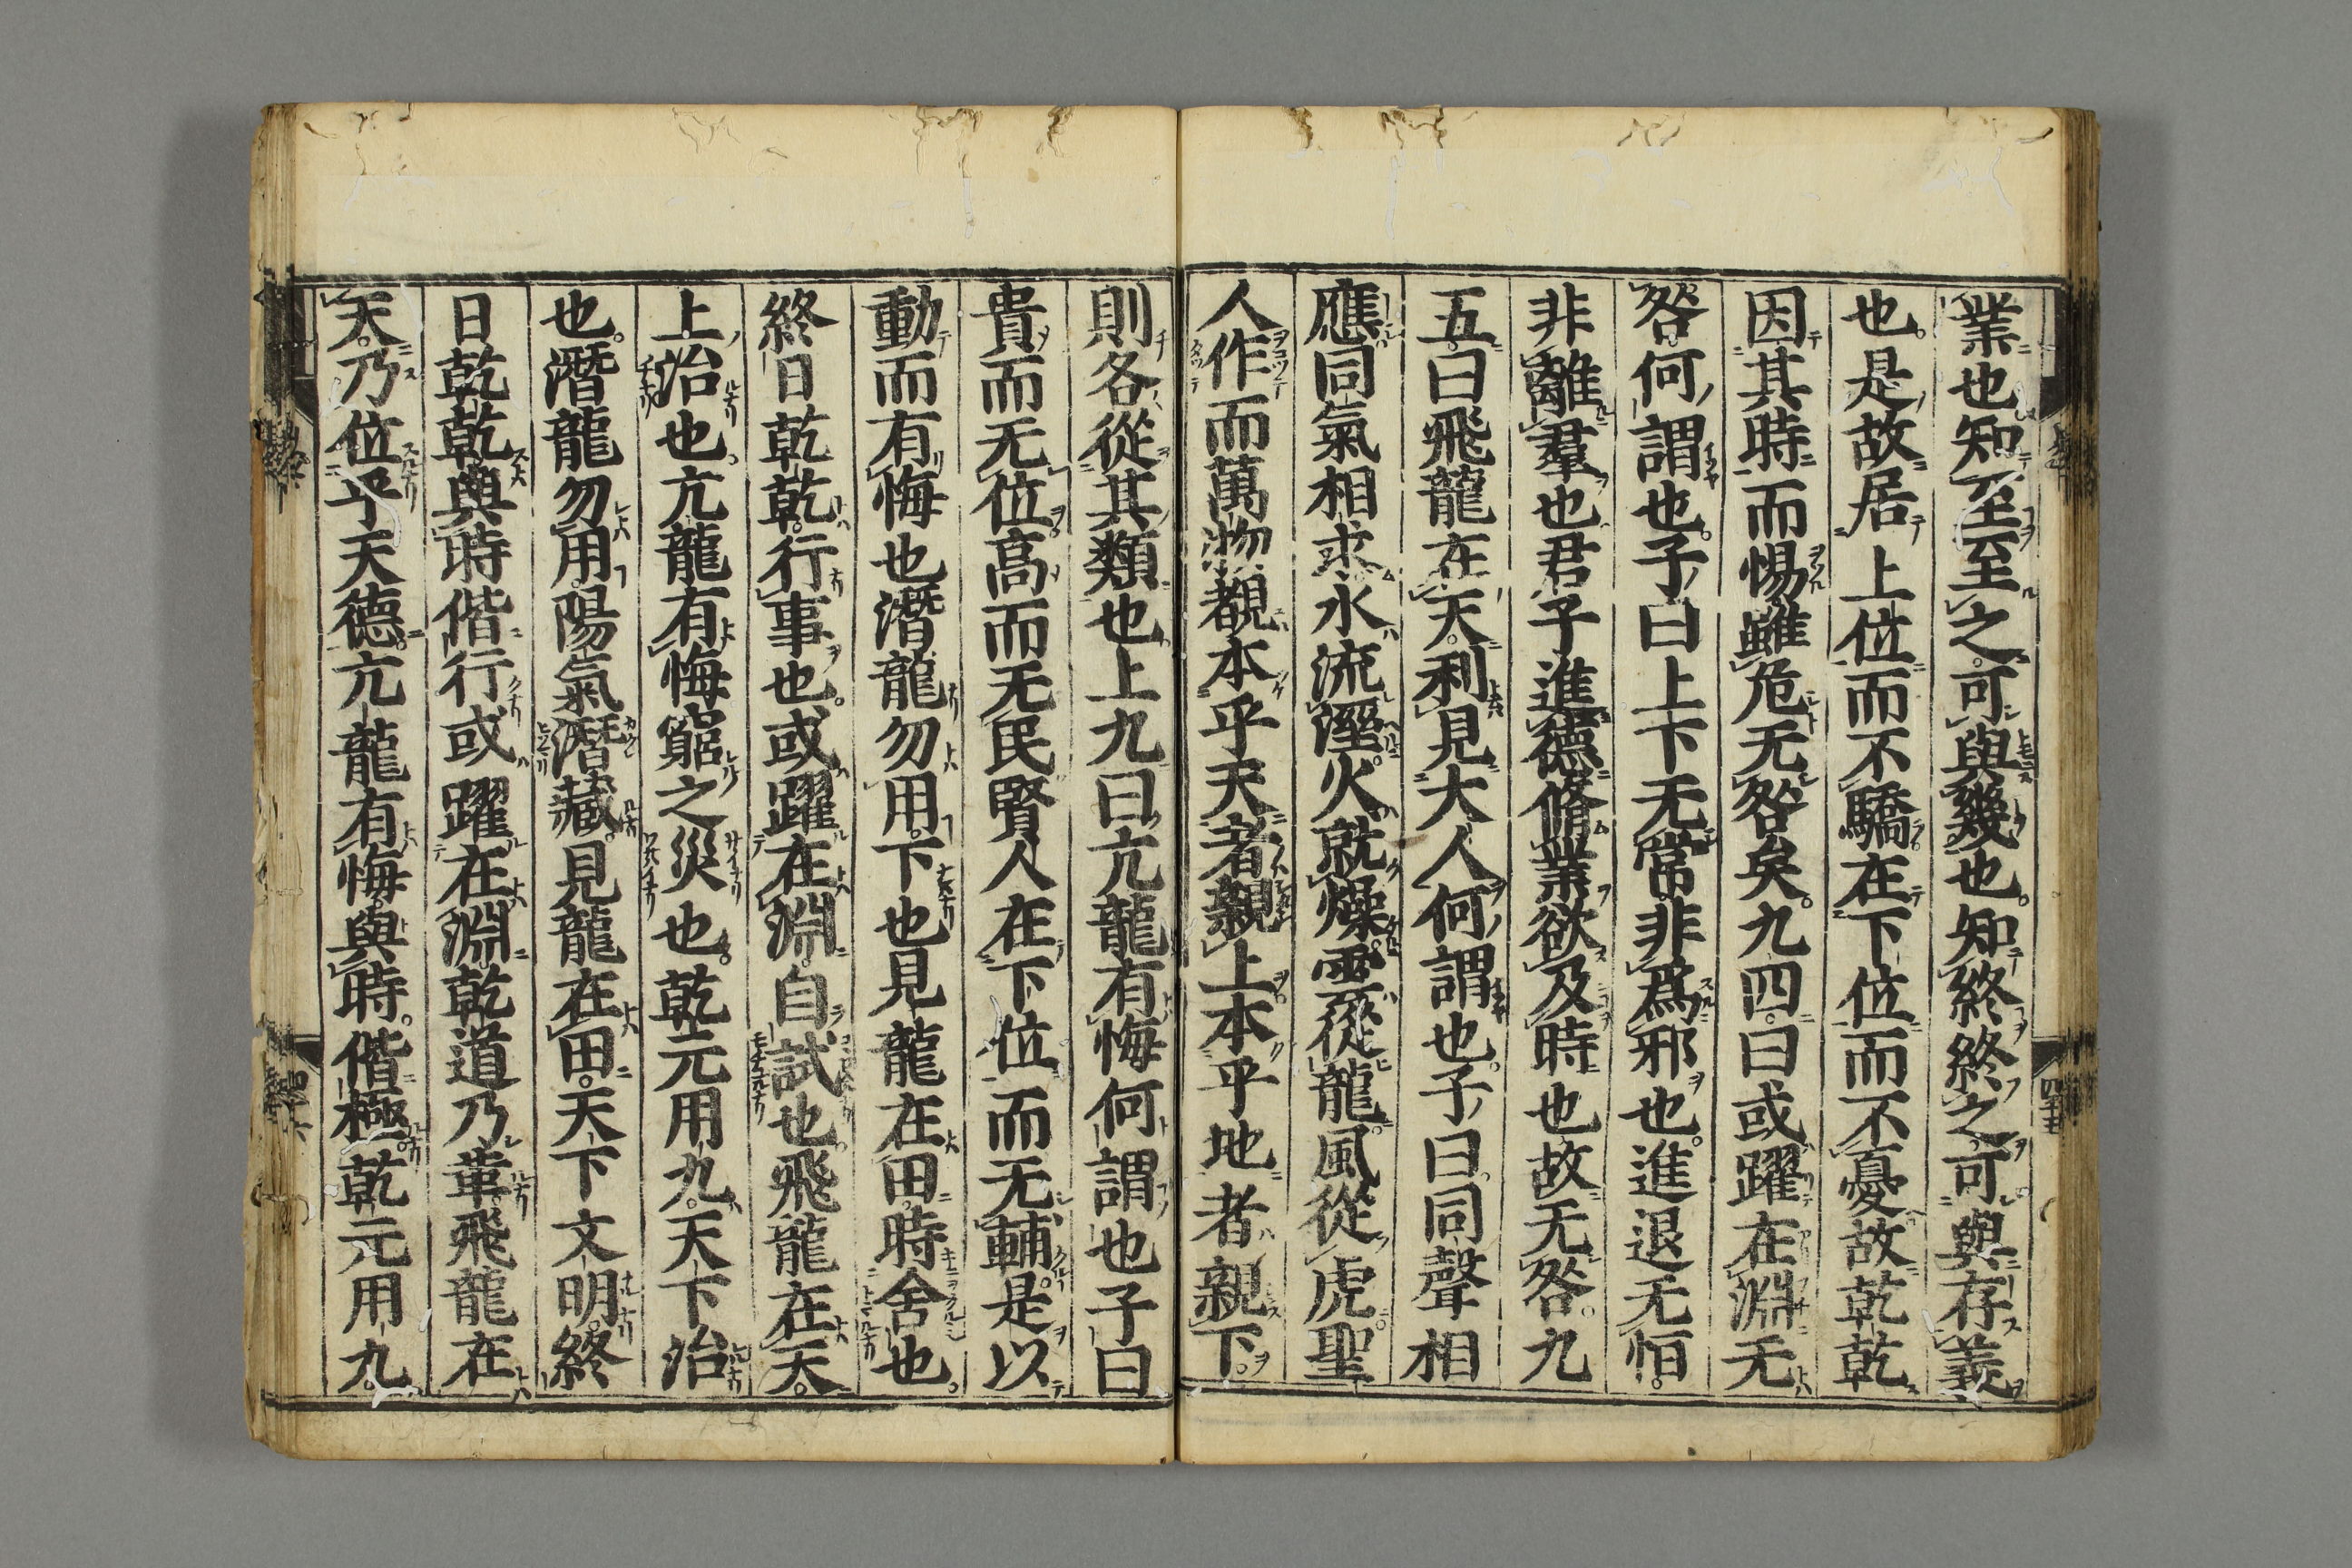 業也知至至之可與幾也知終終之可與存義
也是故居上位而不驕在下位而不憂故乾乾
因其時而惕雖危无咎矣九四曰或躍在淵无
咎何謂也子曰上下无常非爲邪也進退无恒
非離羣也君子進德脩業欲及時也故无咎九
五曰飛龍在天利見大人何謂也子曰同聲相
應同氣相求水流溼火就燥雲從龍風從虎聖
人作而萬物覩本乎天者親上本乎地者親下
則各從其類也上九曰亢龍有悔何謂也子曰
貴而无位高而无民賢人在下位而无輔是以
動而有悔也潛龍勿用下也見龍在田時舍也
終日乾乾行事也或躍在淵自試也飛龍在天
上治也亢龍有悔窮之災也乾元用九天下治
也潛龍勿用陽氣潛藏見龍在田天下文明終
日乾乾與時偕行或躍在淵乾道乃革飛龍在
天乃位乎天德亢龍有悔與時偕極乾元用九